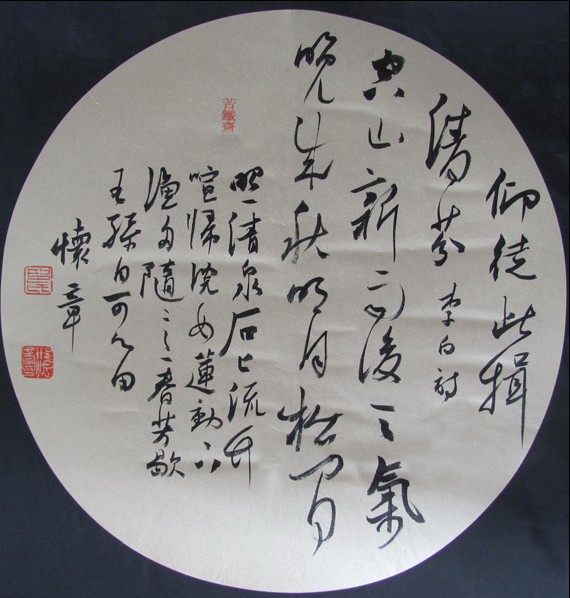 仰徒此揖
清芬 李白詩
空山新雨後天氣
晚来秋明月松間
照清泉石上流竹
喧歸浣女蓮動下
漁舟隨意春芳歇
王孫自可留
懷章
苦鐵齋